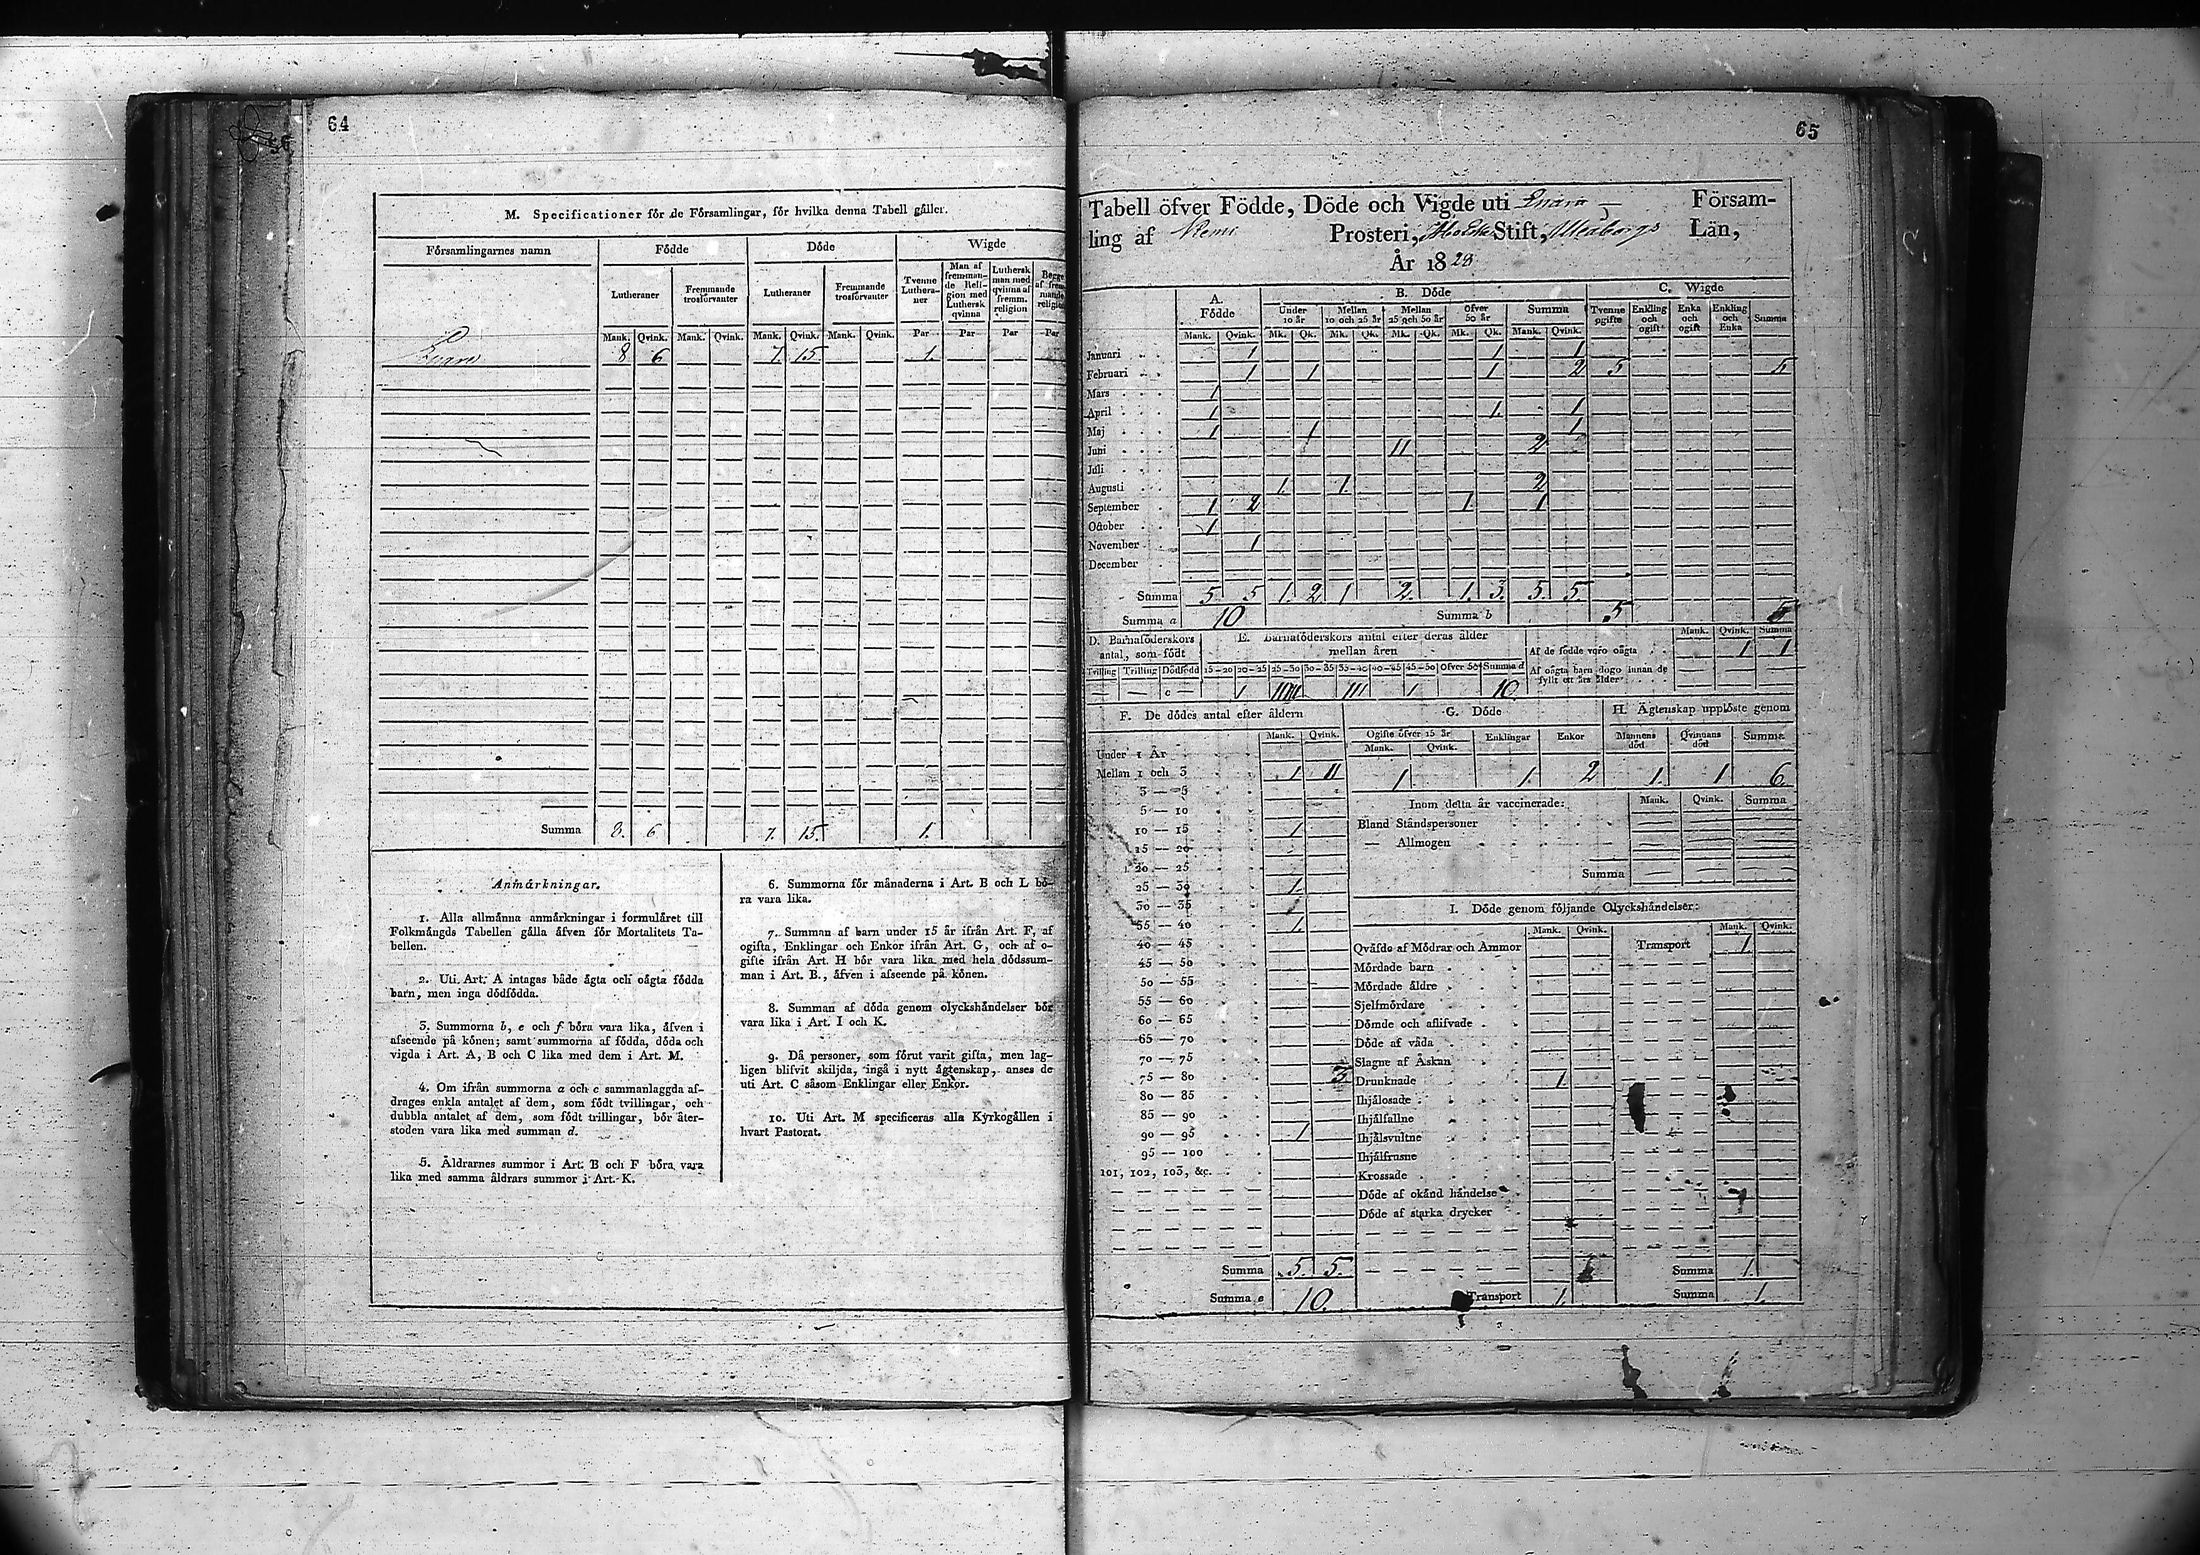 64
M. Specificationer för de Församlingar, för hvilka denna Tabell gäller.
Församlingarnes namn Födde Döde Wigde
Lutheraner Fremmande trosförvanter Lutheraner Fremmande trosförvanter Tvenne Lutheraner Man af fremmande Religion med Luthersk qvinna Luthersk man med qvinna af fremm. religion Begge af fremmande religion
Mank. Qvink. Mank. Qvink. Mank. Qvink. Mank. Qvink. Par Par Par Par
Enare 8 6 7. 15 1.
Summa 8. 6 7. 15. 1.
Anmärkningar.
1. Alla allmänna anmärkningar i formuläret till
Folkmängds Tabellen gälla äfven för Mortalitets Ta-
bellen.
2. Uti Art. A intagas både ägta och oägta födda
barn, men inga dödfödda.
3. Summorna b, e och f böra vara lika, äfven i
afseende på könen; samt summorna af födda, döda och
vigda i Art. A, B och C lika med dem i Art. M.
4. Om ifrån summorna a och c sammanlaggda af-
drages enkla antalet af dem, som födt tvillingar, och
dubbla antalet af dem, som födt trillingar, bör åter-
stoden vara lika med summan d.
5. Åldrarnes summor i Art. B och F böra vara
lika med samma åldrars summor i Art. K.
6. Summorna för månaderna i Art. B och L bö-
ra vara lika.
7. Summan af barn under 15 år ifrån Art. F, af
ogifta, Enklingar och Enkor ifrån Art. G, och af o-
gifte ifrån Art. H bör vara lika med hela dödssum-
man i Art. B., äfven i afseende på könen.
8. Summan af döda genom olyckshändelser bör
vara lika i Art. I och K.
9. Då personer, som förut varit gifta, men lag-
ligen blifvit skiljda, ingå i nytt ägtenskap, anses de
uti Art. C såsom Enklingar eller Enkor.
10. Uti Art. M specificeras alla Kyrkogällen i
hvart Pastorat.
65
Tabell öfver Födde, Döde och Vigde uti Enare Församling
ling af Kemi Prosteri, Åbo Stift, Uleåborgs Län,
År 1828
A. Födde B. Döde C. Wigde
Under 10 år Mellan 10 och 25 år Mellan 25 och 50 år Öfver 50 år Summa Tvenne ogifte Enkling och ogift Enka och ogift Enkling och Enka Summa
Mank. Qvink. Mk. Qk. Mk. Qk. Mk. Qk. Mk. Qk. Mank. Qvink.
Januari 1 1 1
Februari 1 1 1 2 5 5
Mars 1
April 1 1. 1
Maj 1 1 1
Juni 11 2
Juli
Augusti 1. 1. 2
September 1 2 1. 1
October 1
November 1
December
Summa 5. 5 1. 2 1 2. 1. 3. 5. 5.
Summa a 10 Summa b 5 5
D. Barnaföderskors antal, som födt
E. Barnaföderskors antal efter deras ålder mellan åren
Mank. Qvink. Summa
Af de födde voro oägta 1 1
Af oägta barn dogo innan de fyllt ett års ålder
Tvilling Trilling Dödfödd 15—20 20—25 25—30 30—35 35—40 40—45 45—50 Öfver 50 Summa d
c — 1 11111 111 1 10.
F. De dödes antal efter åldern G. Döde H. Ägtenskap upplöste genom
Mank. Qvink. Ogifte öfver 15 år Mank. Qvink. Enklingar Enkor Mannens död Qvinnans död Summa
Under 1 År
Mellan 1 och 3 1. 11 1 1. 2 1. 1 6.
3 — 5
5 — 10
10 — 15 1.
15 — 20
20 — 25
25 — 30 1.
30 — 35
35 — 40 1.
40 — 45
45 — 50
50 — 55
55 — 60
60 — 65
65 — 70
70 — 75
75 — 80 3
80 — 85
85 — 90
90 — 95 1
95 — 100
101, 102, 103, &c.
Summa 5. 5.
Summa e 10.
Inom detta år vaccinerade: Mank. Qvink. Summa
Bland Ståndspersoner
— Allmogen
Summa
I. Döde genom följande Olyckshändelser:
Mank. Qvink. Mank. Qvink.
Qväfde af Mödrar och Ammor Transport 1
Mördade barn
Mördade äldre
Sjelfmördare
Dömde och aflifvade
Döde af våda
Slagne af Åskan
Drunknade 1
Ihjälosade
Ihjälfallne
Ihjälsvultne
Ihjälfrusne
Krossade
Döde af okänd händelse
Döde af starka drycker
Summa 1.
Transport 1. Summa 1.